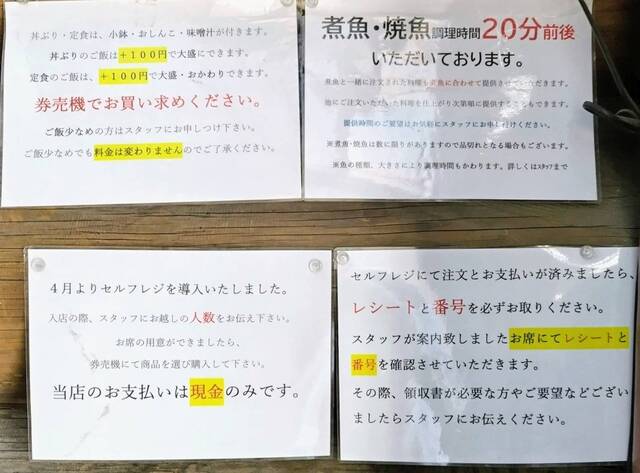 丼ぶり・定食は、小鉢・おしんこ・味噌汁が付きます。
丼ぶりのご飯は＋１００円で大盛にできます。
定食のご飯は、＋１００円で大盛・おかわりできます。
券売機でお買い求めください。
ご飯少なめの方はスタッフにお申しつけ下さい。
ご飯少なめでも料金は変わりませんのでご了承ください。
煮魚・焼魚調理時間20分前後
いただいております。
煮魚と一緒に注文された料理も煮魚に合わせて提供させていただきます。
他にご注文いただいた料理を仕上がり次第順に提供することもできます。
提供時間のご要望はお気軽にスタッフにお申し付けください。
※煮魚・焼魚は数に限りがありますので品切れとなる場合もございます。
※魚の種類、大きさにより調理時間もかわります。詳しくはスタッフまで
４月よりセルフレジを導入いたしました。
入店の際、スタッフにお越しの人数をお伝え下さい。
お席の用意ができましたら、
券売機にて商品を選び購入して下さい。
当店のお支払いは現金のみです。
セルフレジにて注文とお支払いが済みましたら、
レシートと番号を必ずお取りください。
スタッフが案内致しましたお席にてレシートと
番号を確認させていただきます。
その際、領収書が必要な方やご要望などござい
ましたらスタッフにお伝えください。